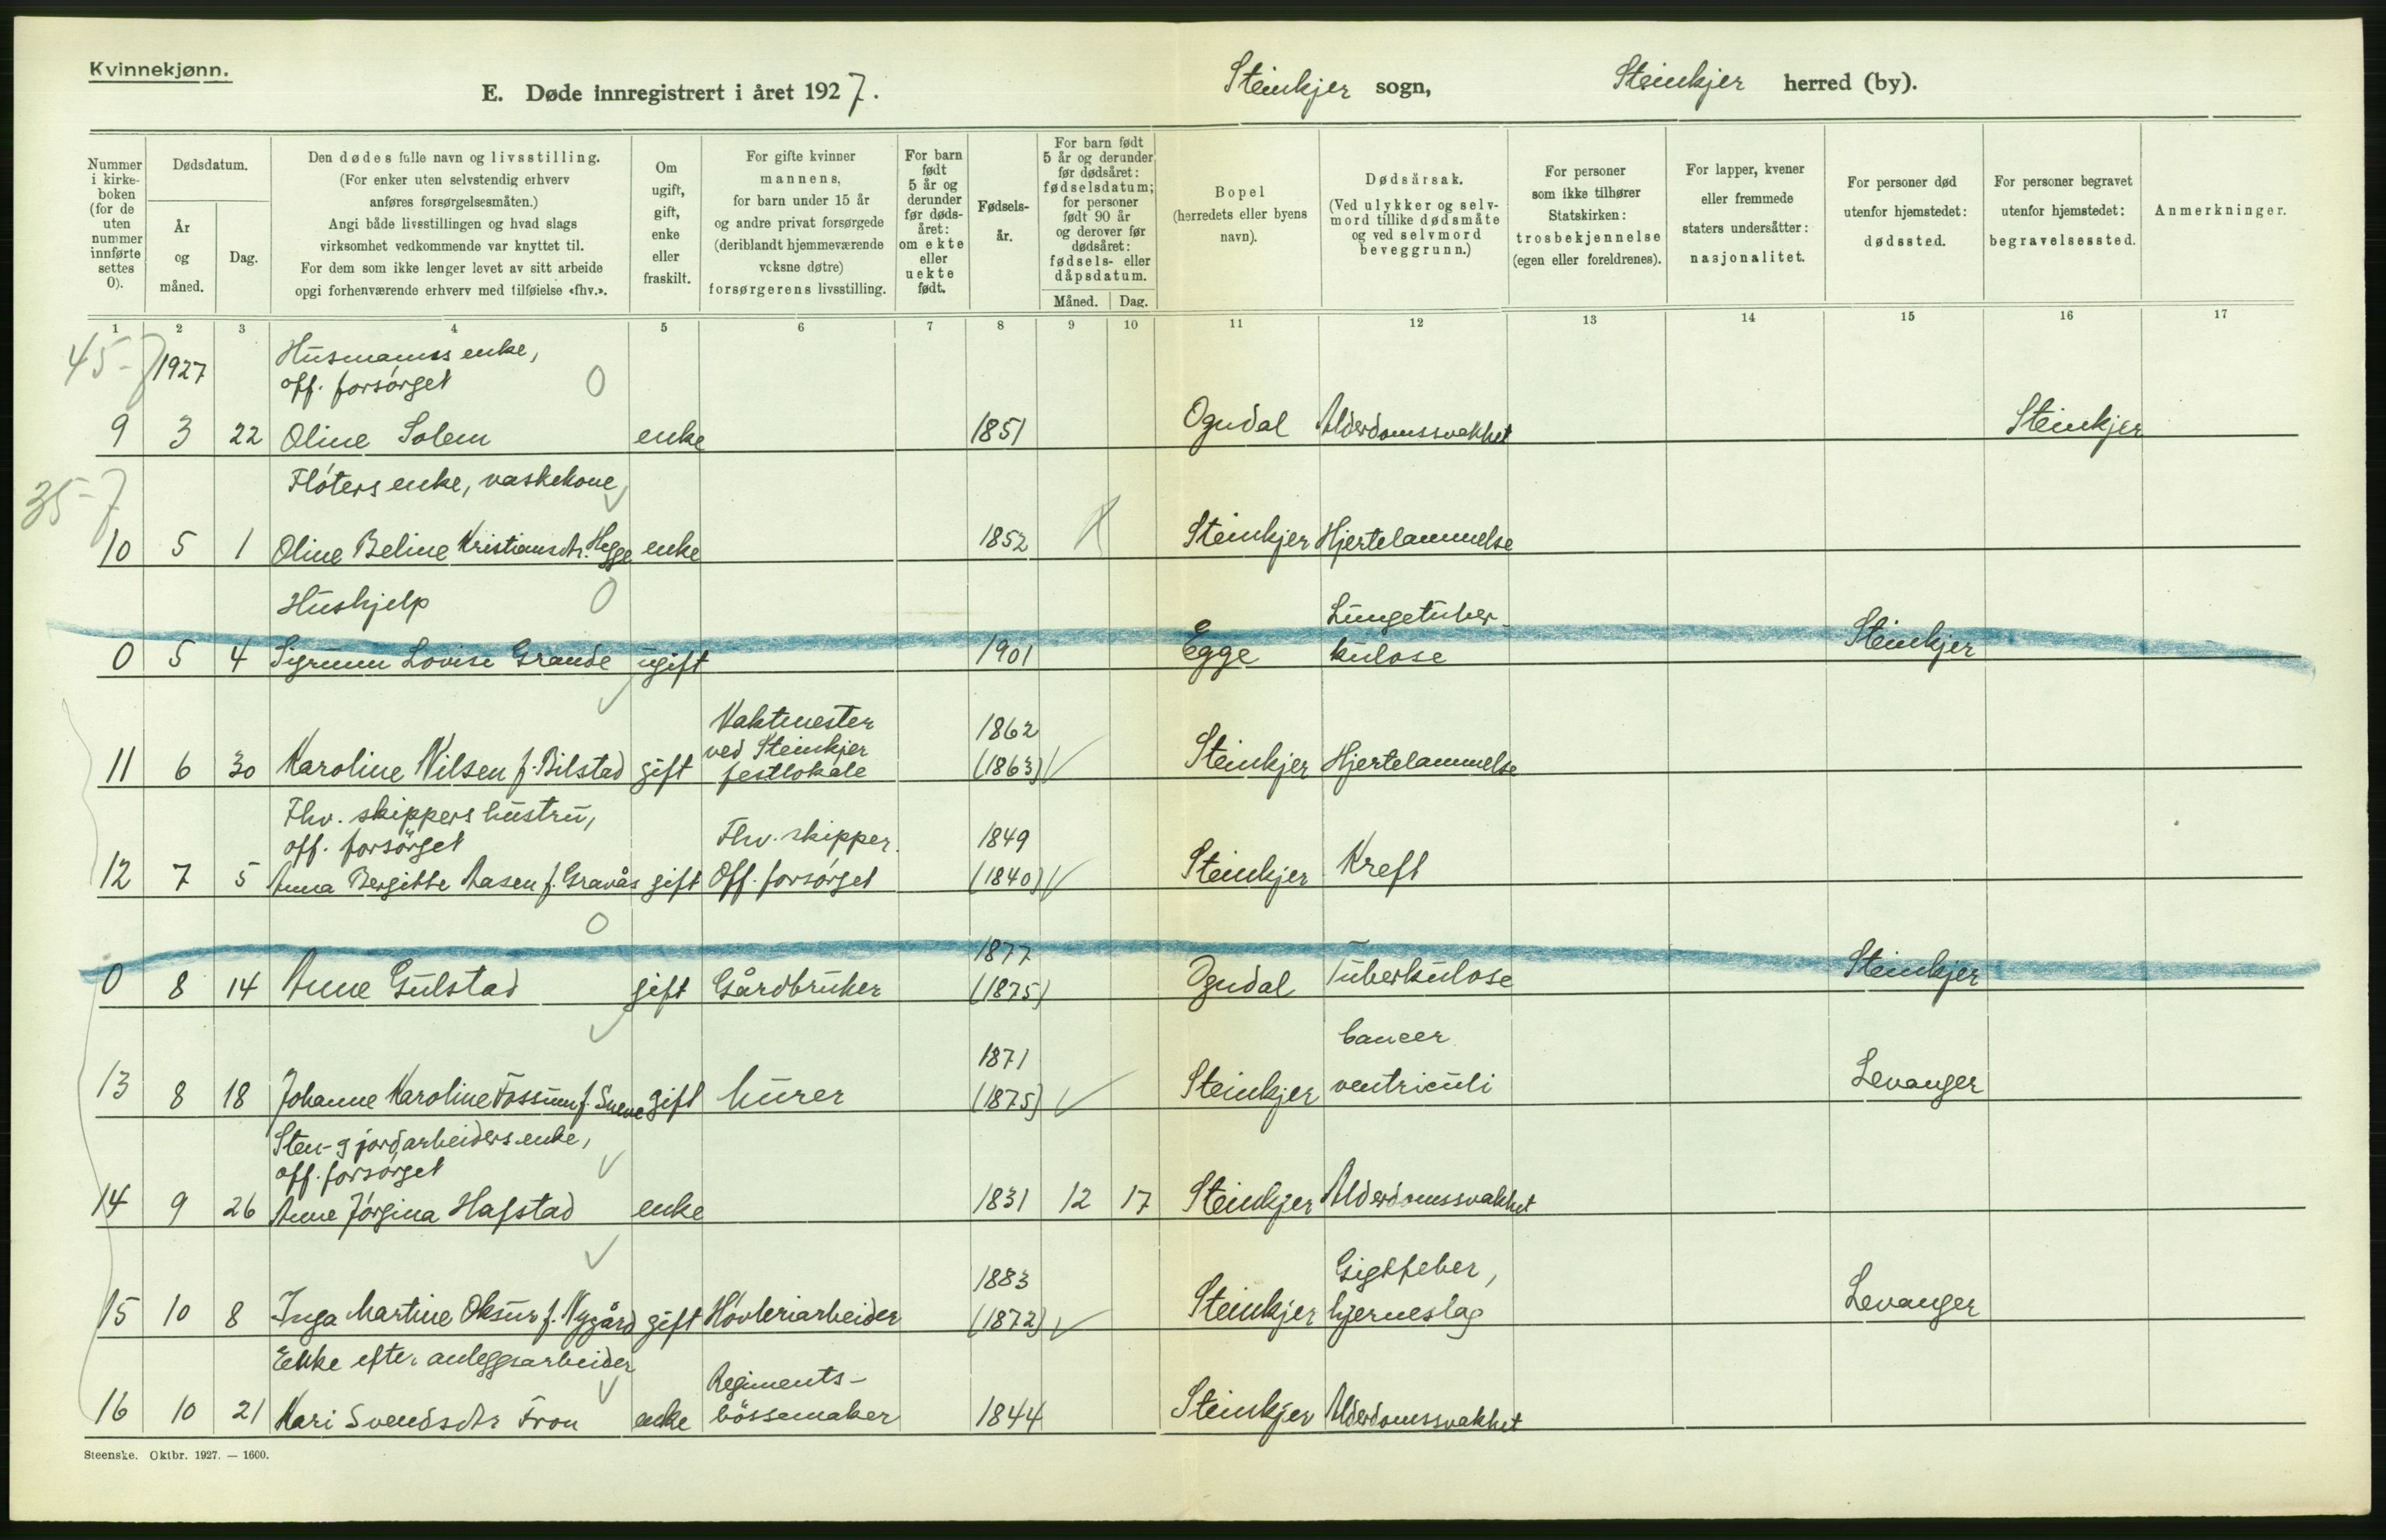 Kvinnekjønn.
E. Døde innregistrert i året 1927.
Steinkjer sogn, Steinkjer herred (by).
Nummer i kirke- boken (for de uten nummer innførte settes 0).
Dødsdatum.
År og måned.
Dag.
Den dødes fulle navn og livsstilling.
(For enker uten selvstendig erhverv
anføres forsørgelsesmåten.)
Angi både livsstillingen og hvad slags
virksomhet vedkommende var knyttet til.
For dem som ikke lenger levet av sitt arbeide
opgi forhenværende erhverv med tilføielse «fhv.».
Om ugift, gift, enke eller fraskilt.
For gifte kvinner
mannens,
for barn under 15 år
og andre privat forsørgede
(deriblandt hjemmeværende
voksne døtre)
forsørgerens livsstilling.
For barn født 5 år og derunder før døds- året: om ekte eller uekte født.
Fødsels- år.
For barn født
5 år og derunder
før dødsåret:
fødselsdatum;
for personer
født 90 år
og derover før
dødsåret:
fødsels- eller
dåpsdatum.
Måned. Dag.
Bopel
(herredets eller byens
navn).
Dødsårsak.
(Ved ulykker og selv-
mord tillike dødsmåte
og ved selvmord
beveggrunn.)
For personer
som ikke tilhører
Statskirken:
trosbekjennelse
(egen eller foreldrenes).
For lapper, kvener
eller fremmede
staters undersåtter:
nasjonalitet.
For personer død
utenfor hjemstedet:
dødssted.
For personer begravet
utenfor hjemstedet:
begravelsessted.
Anmerkninger.
1 2 3 4 5 6 7 8 9 10 11 12 13 14 15 16 17
45-7 1927 Husmanns enke,
off. forsørget 0
9 3 22 Oline Solem enke 1851 Ogndal Alderdomssvakhet Steinkjer
35-7 Fløters enke, vaskekone
10 5 1 Oline Beline Kristiansdtr. Hegge enke 1852 Steinkjer Hjertelammelse
Hushjelp 0 Lungetuber-
0 5 4 Sigrunn Lovise Grande ugift 1901 Egge kulose Steinkjer
Vaktmester 1862
ved Steinkjer
11 6 30 Karoline Nilsen f. Bilstad gift festlokale (1863) Steinkjer Hjertelammelse
Fhv. skippers hustru,
off. forsørget Fhv. skipper. 1849
12 7 5 Anna Bergitte Aasen f. Gravås gift Off. forsørget (1840) Steinkjer Kreft
0 1877
0 8 14 Anne Gulstad gift Gårdbruker (1875) Ogndal Tuberkulose Steinkjer
1871 Cancer
13 8 18 Johanne Karoline Fossum f. Sneve gift Murer (1875) Steinkjer ventriculi Levanger
Sten- g jordarbeiders enke,
off. forsørget
14 9 26 Anne Jørgina Hafstad enke 1831 12 17 Steinkjer Alderdomssvakhet
1883 Gigtfeber,
15 10 8 Inga Martine Oksur f. Nygård gift Høvleriarbeider (1872) Steinkjer hjerneslag Levanger
Enke efter anleggsarbeider Regiments-
16 10 21 Kari Svendsdtr Fron enke bøssemaker 1844 Steinkjer Alderdomssvakhet
Steenske. Oktbr. 1927. — 1600.